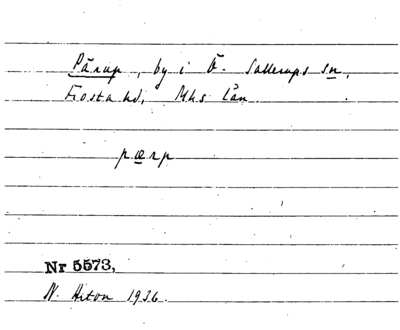 Pärup, by i Ö. Sallerups sn,
Frosta hd, Mhs län.
pærp
Nr 5573,
N. Hiton 1936.